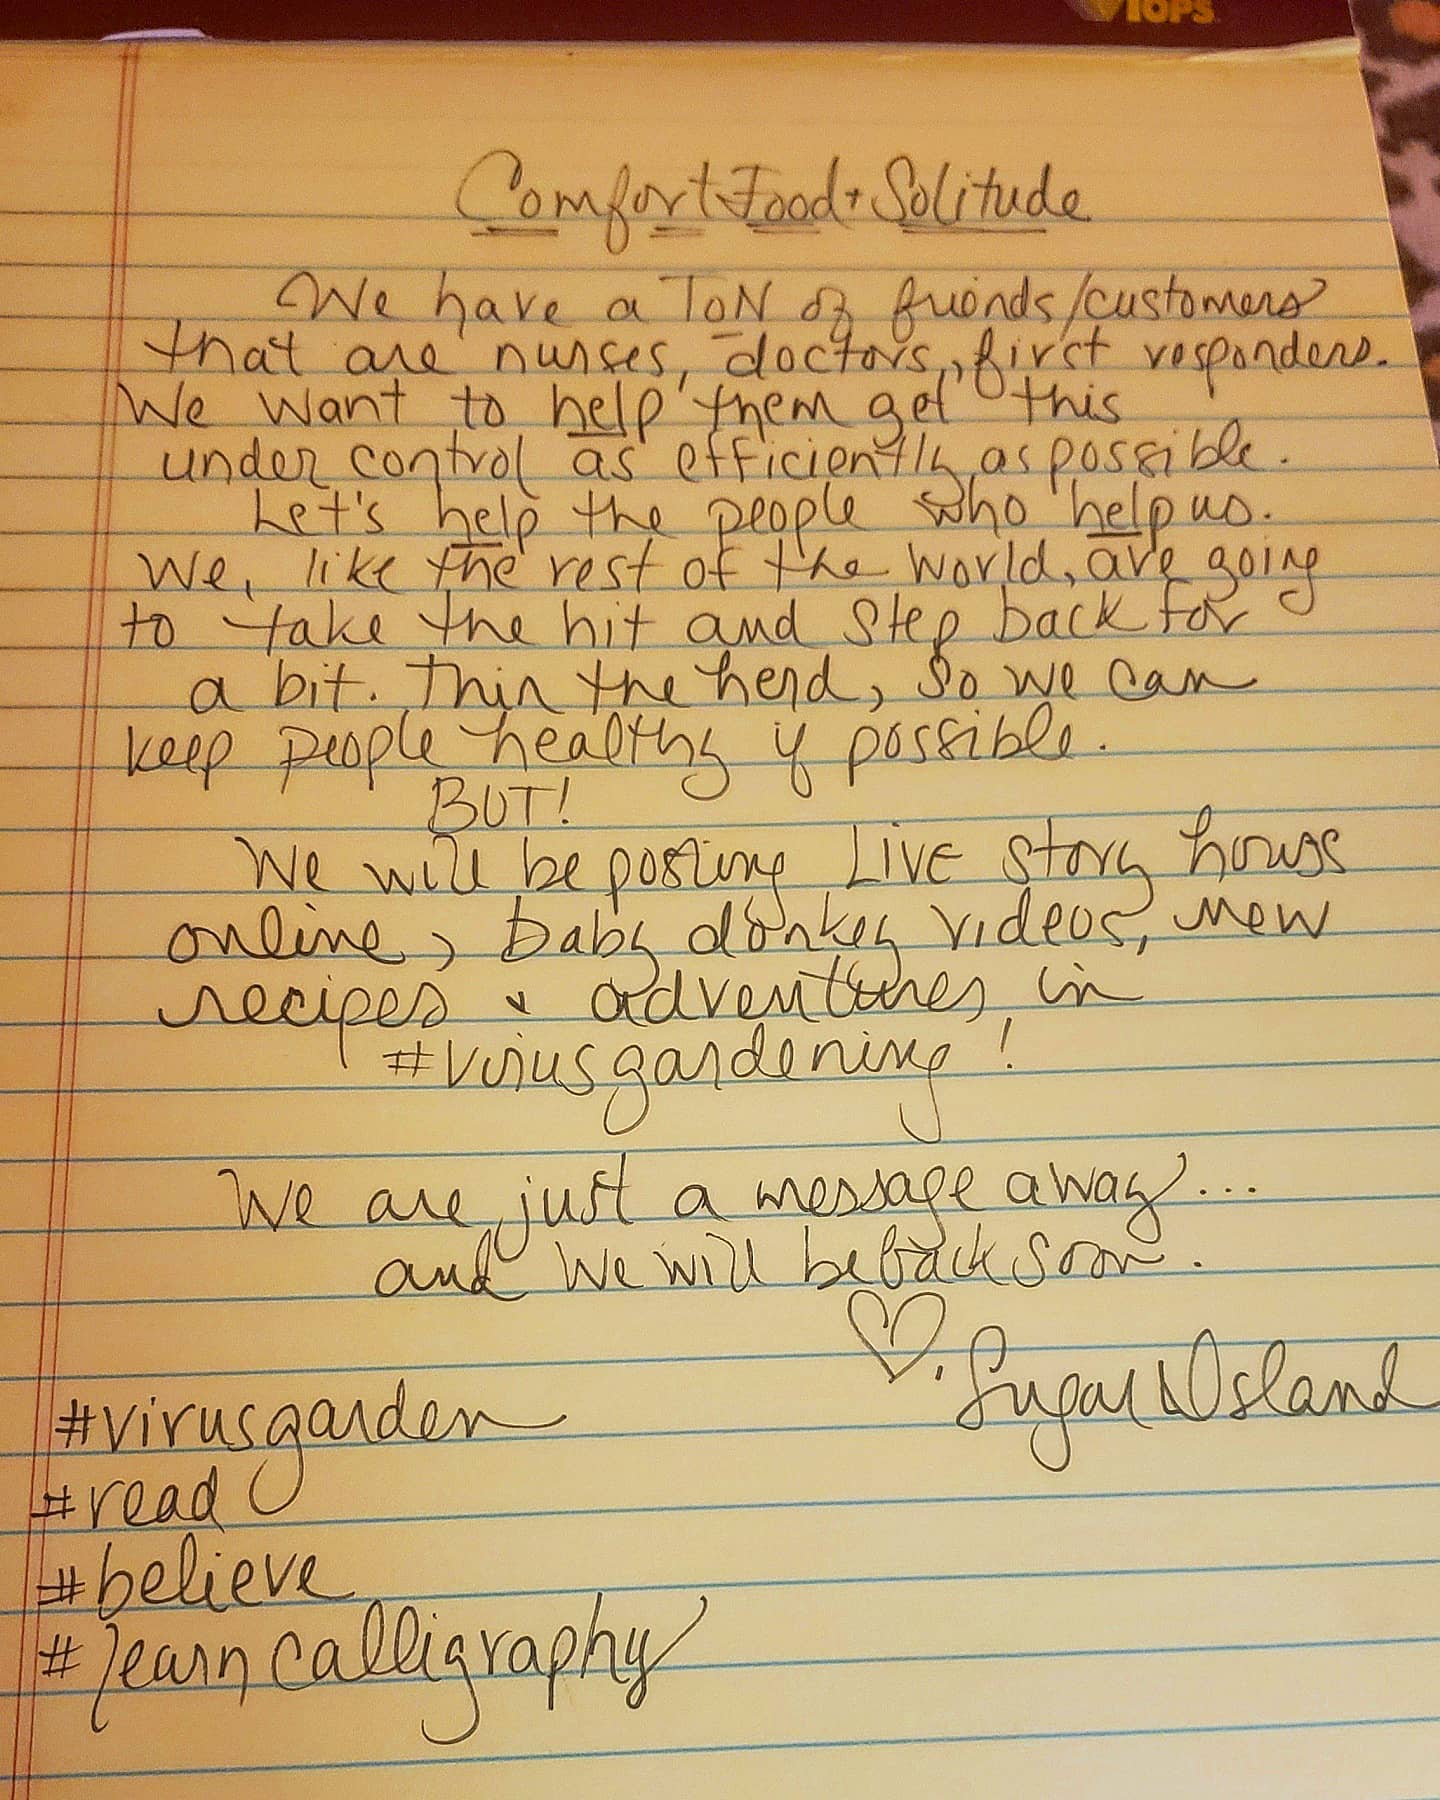 TOPS
Comfort Food + Solitude
We have a ToN of friends/customers
that are nurses, doctors, first responders.
We want to help them get this
under control as efficiently as possible.
Let's help the people who help us.
We, like the rest of the world, are going
to take the hit and step back for
a bit. Thin the herd, so we can
keep people healthy if possible.
BUT!
We will be posting LIVE story hours
online, baby donkey videos, new
recipes + adventures in
#virusgardening!
We are just a message away...
and we will be back soon.
♡. Sugar Island
#virusgarden
#read
#believe
#learncalligraphy